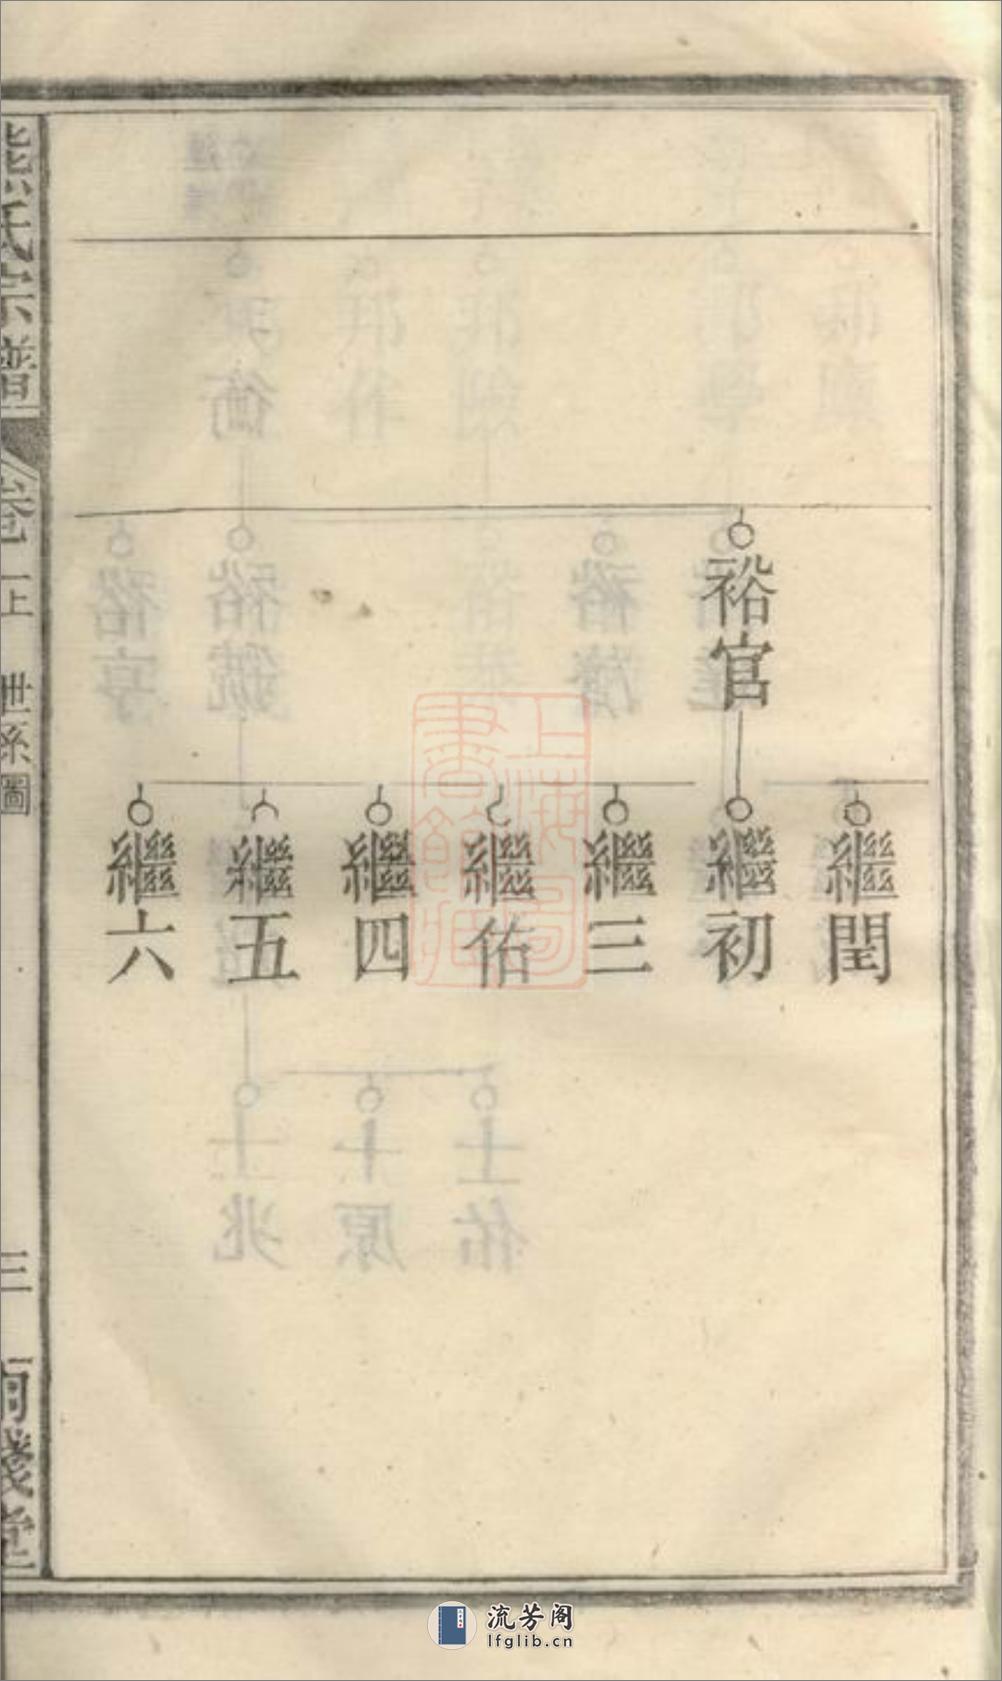 裕官
繼閏
繼初
繼三
繼佑
繼四
繼五
繼六
熊氏宗譜
卷一上 世系圖
三
上海圖書館藏
流芳阁
lfglib.cn